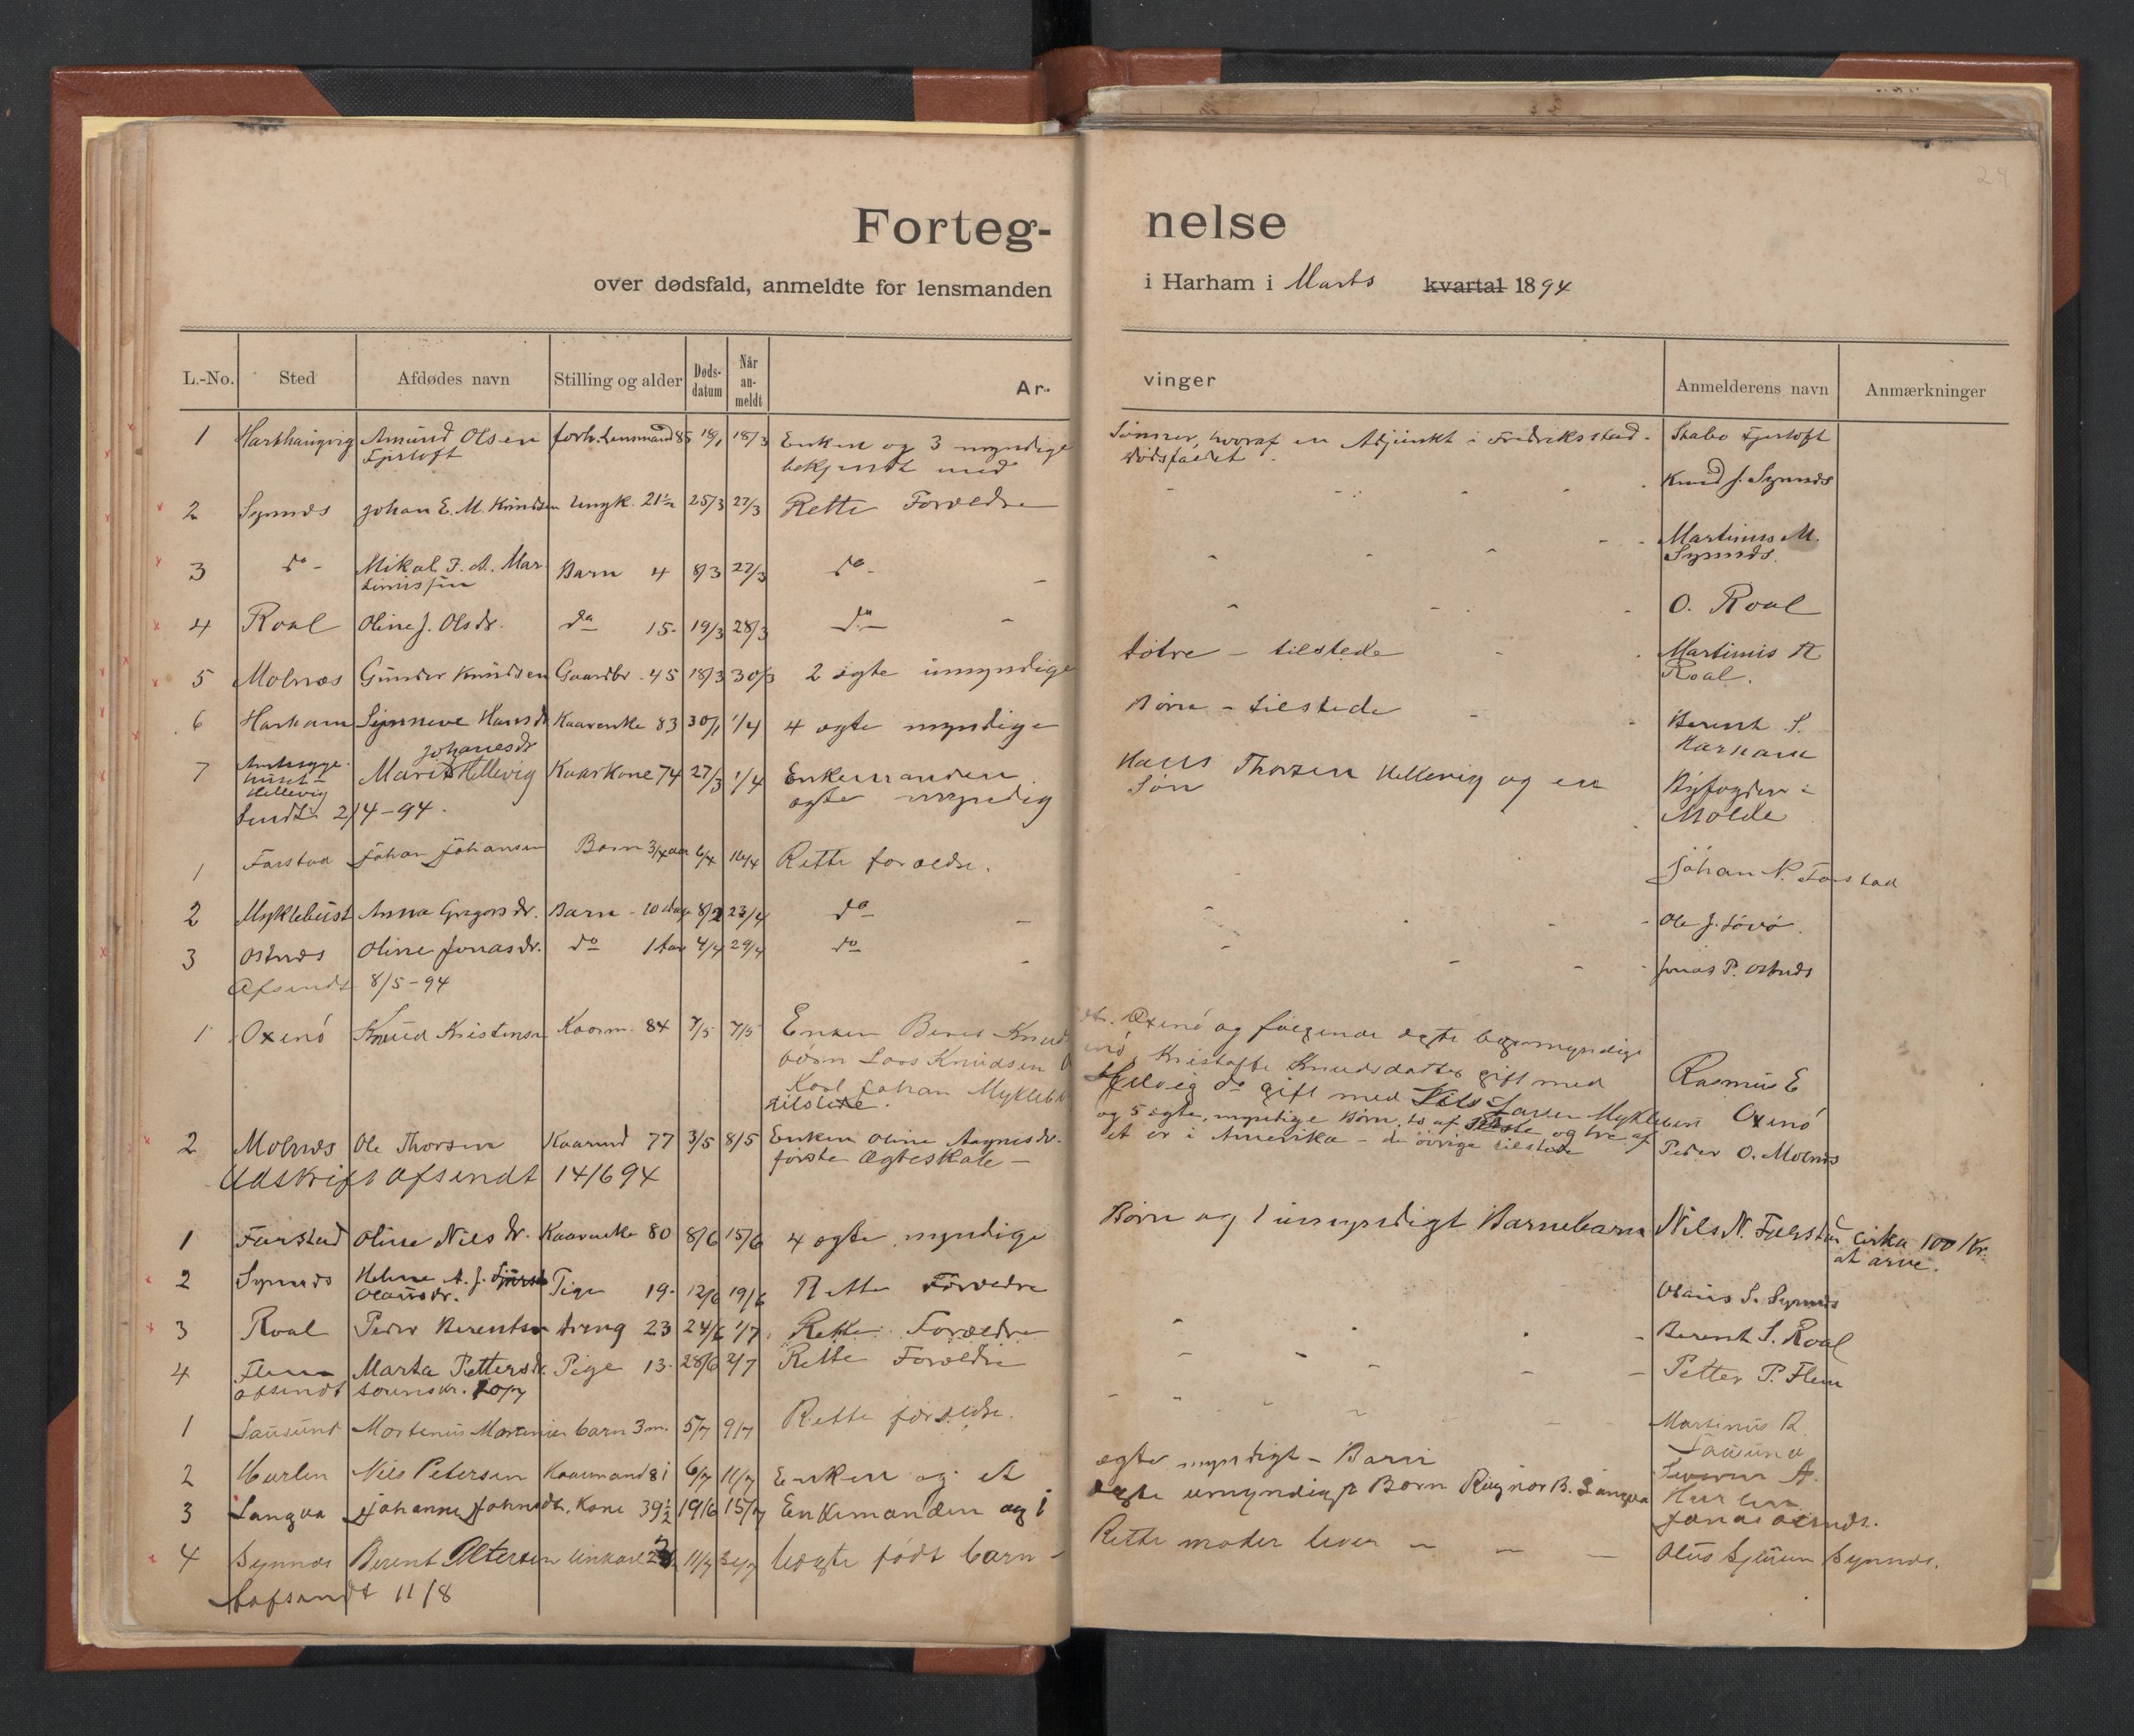 24
Forteg- nelse
over dødsfald, anmeldte for lensmanden i Harham i Marts kvartal 1894
L.-No. Sted Afdødes navn Stilling og alder Døds-datum Når an-meldt Ar- vinger Anmelderens navn Anmærkninger
1 Harhaugvig Amund Olsen forh. Lensmand 85 18/1 18/3 Enken og 3 myndige Sønner, hvoraf en Adjunkt i Fredriksstad - Stabo Fjertoft
Fjertoft bekjendt med dødsfaldet
2 Synnes Johan E. M. Knudsen Ungk. 21½ 25/3 27/3 Rette Forældre Knud J. Synnes
3 do - Mikal J. A. Mar Barn 4 8/3 27/3 do - Martinus M.
tinussen Synnes.
4 Roal Oline J. Olsdr. do 15 - 19/3 28/3 do O. Roal
5 Molnes Gunder Knudsen Gaardbr. 45 18/3 30/3 2 ægte umyndige døtre - tilstede Martinus R
Roal.
6 Harham Synneve Hansdr Kaarenke 83 30/1 1/4 4 ægte myndige Børn - tilstede Berent S.
Harham
Johanesdr
7 Hellevig Marit Hellevig Kaarkone 74 27/3 1/4 Enkemanden Hans Thorsen Hellevig og en Byfogden i
ægte myndig Søn Molde
Sendt 2/4 - 94.
1 Farstad Johan Johansen Barn 3/4 aar 6/4 16/4 Rette forældre. Johan N. Farstad
2 Myklebust Anna Gregorsdr. Barn - 10 dage 8/2 23/4 do Ole J. Løvø.
3 Østnes Oline Jonasdr. do 1 aar 4/4 29/4 do Jonas P. Østnes
Afsendt 8/5 - 94
1 Oxenø Knud Kristensen Kaarm. 84 7/5 7/5 Enken Beret Knudsdt. Oxenø og følgende ægte myndige
børn Lars Knudsen Oxenø, Kristofte Knudsdatter gift med Rasmus E
Karl Johan Myklebust Helvig do gift med Nils Larsen Myklebust Oxenø
tilstede.
2 Molnes Ole Thorsen Kaarmd 77 3/5 8/5 Enken Oline Aagnesdr. og 5 ægte, myndige Børn, to af sidste og tre af Peder O. Molnes
første Ægteskab - et er i Amerika - de øvrige tilstede
Udskrift afsendt 14/6 94
1 Farstad Oline Nilsdr. Kaarenke 80 8/6 15/6 4 ægte myndige Børn og 1 umyndigt Barnebarn Nils N. Farstad cirka 100 Kr.
at arve.
2 Synnes Helene A. J. Pige 19 - 12/6 19/6 Rette Forældre Olaus S. Synnes
Olausdr.
3 Roal Peder Berentsen dreng 23 24/6 1/7 Rette Forældre Berent S. Roal
4 Flem Marta Pettersdr. Pige 13 - 28/6 2/7 Rette Forældre Petter P. Flem
afsendt sorenskr. Kopy
1 Søusund Martenus Martenusen barn 3 m. 5/7 9/7 Rette forældre. Martinus R.
Søusund
2 Hurlen Nils Petersen Kaarmand 81 6/7 11/7 Enken og et ægte myndigt - Barn A.
Hurlen
3 Langva Johanne Johnsdt. Kone 39½ 19/6 15/7 Enkemanden og 1 ægte umyndigt Barn Ragnor B. Langva Jonas Østnes.
4 Synnes Berent Petersen Unkarl 11/7 Uægte født barn - Rette moder lever - - - Olus Synnes.
afsendt 11/8